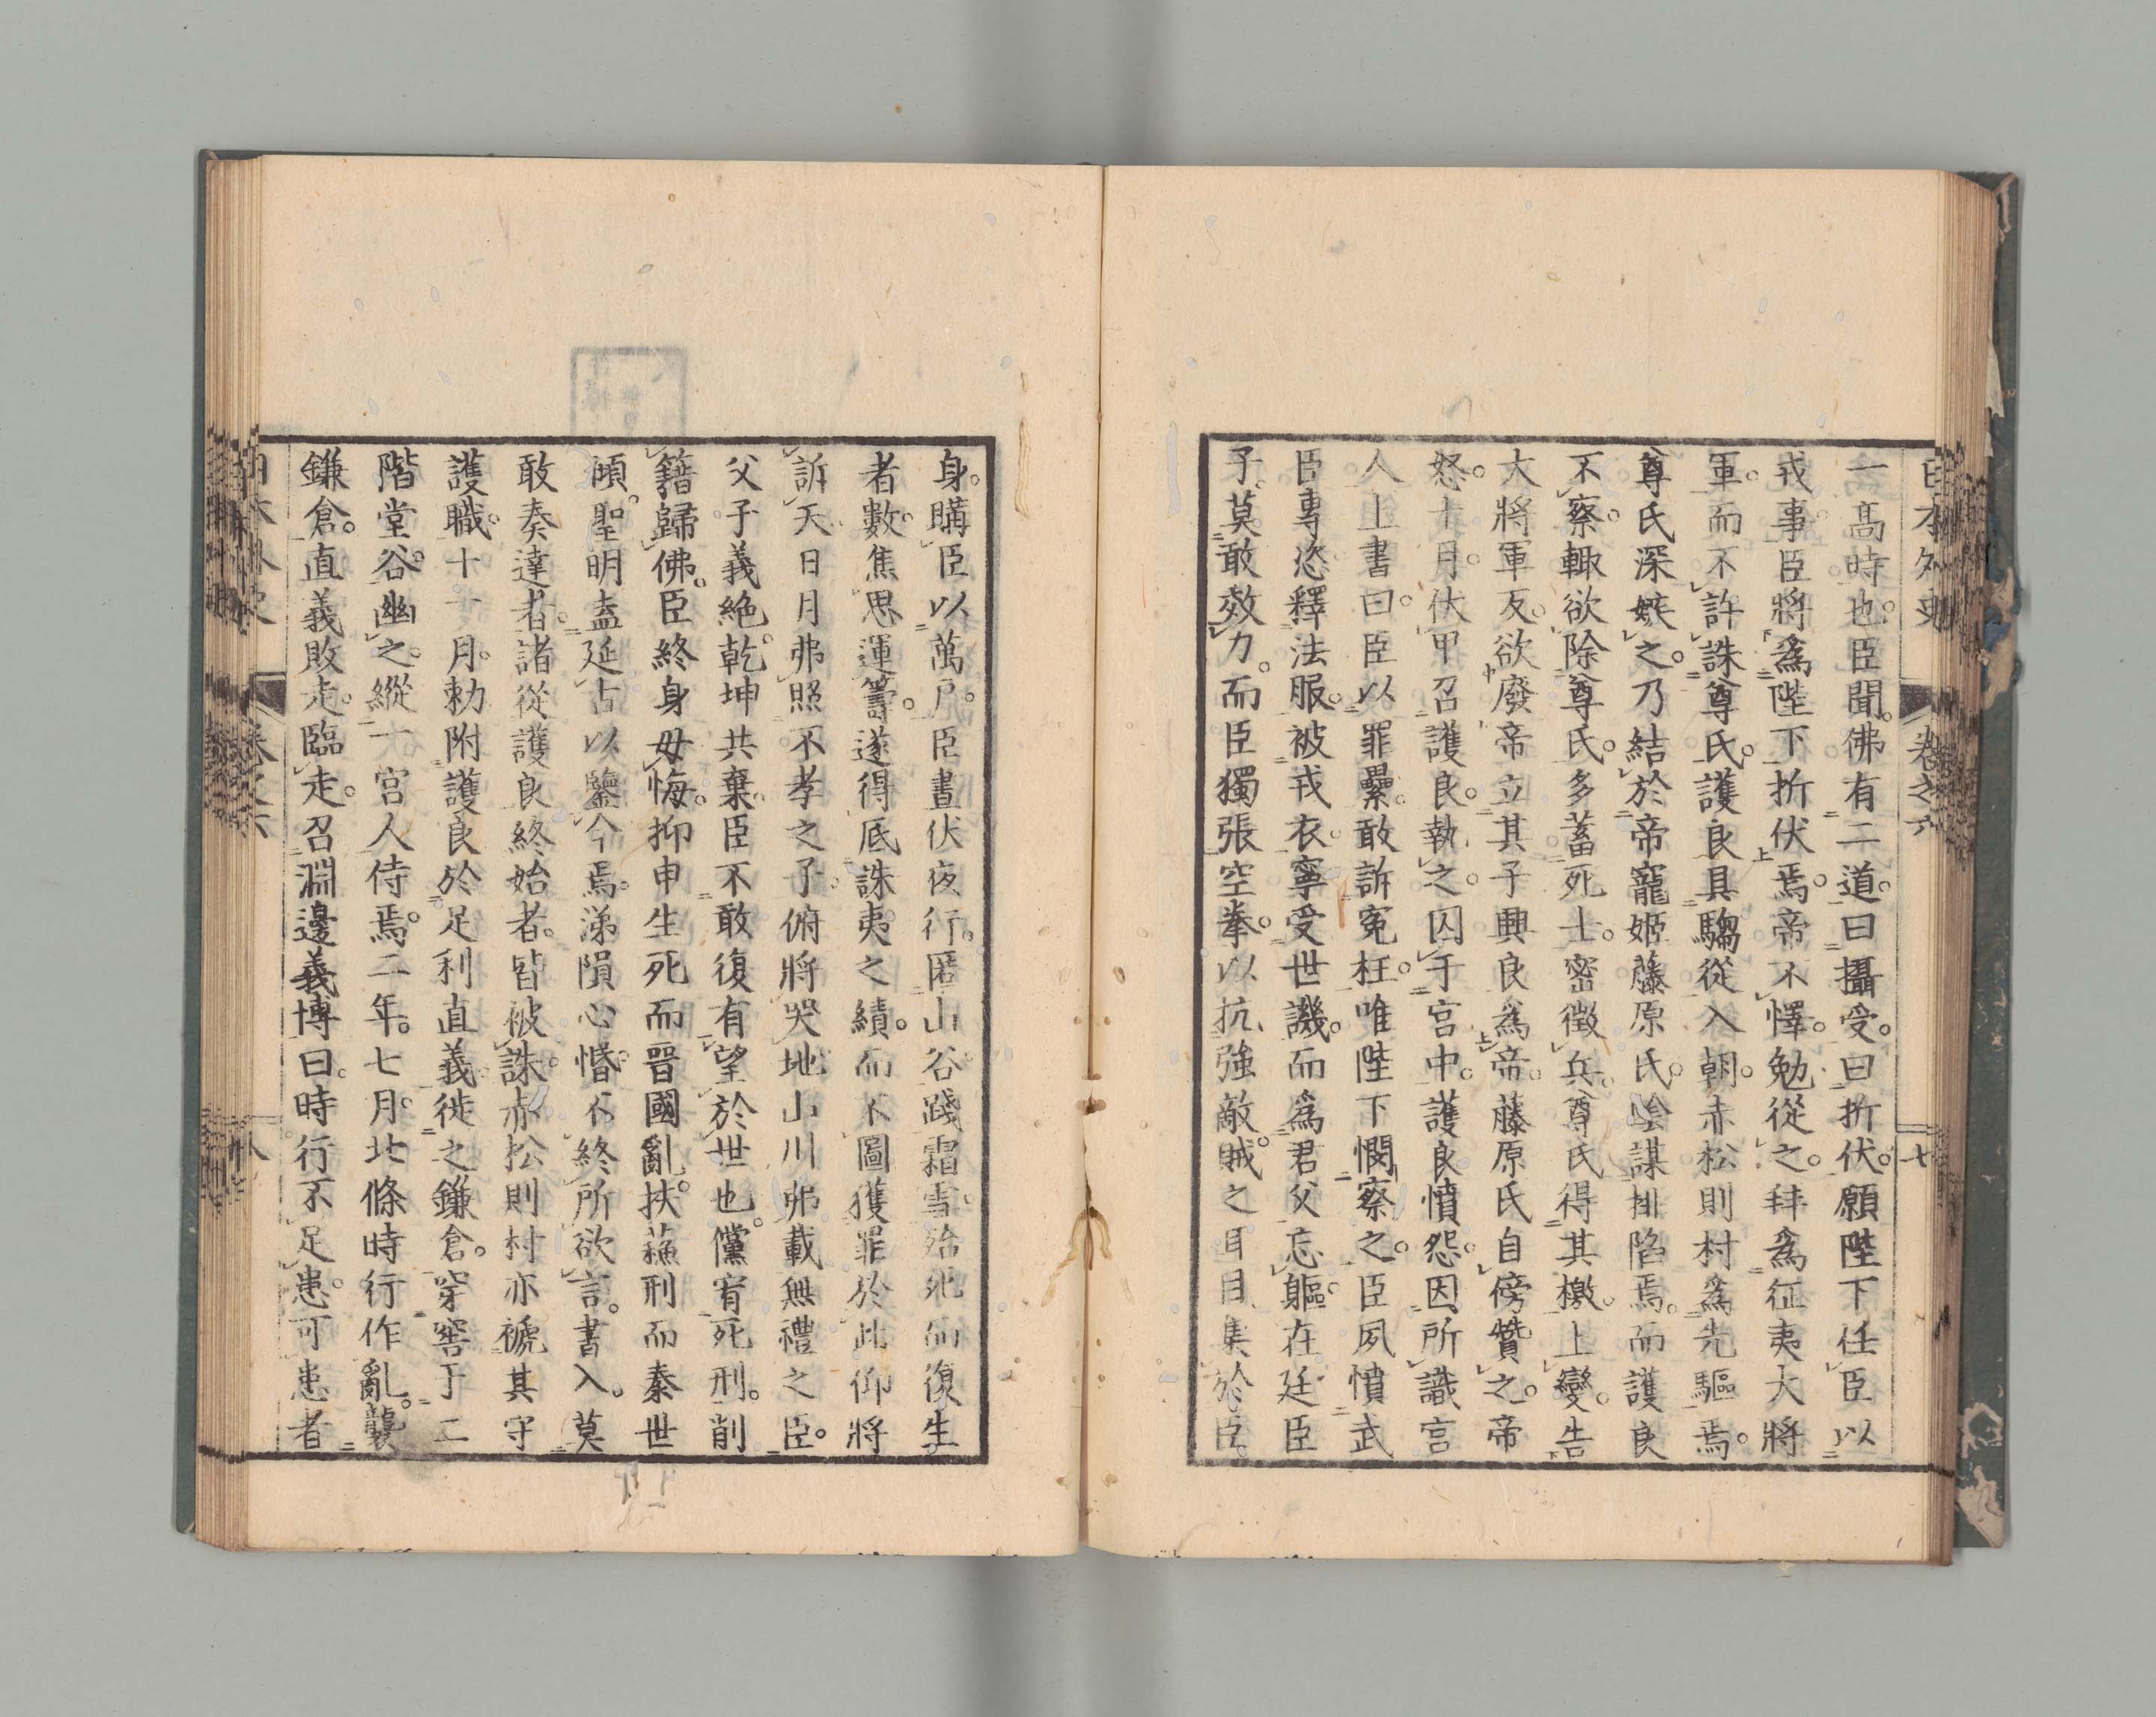 日本外史 卷之六 七
一高時也。臣聞。佛有二道。曰攝受。曰折伏。願陛下任臣以
戎事臣將爲陛下折伏焉。帝不懌。勉從之。拜爲征夷大將
軍。而不許誅尊氏。護良具騶從入朝。赤松則村爲先驅焉。
尊氏深嫉之。乃結於帝寵姬藤原氏。陰謀排陷焉。而護良
不察。輙欲除尊氏。多蓄死士。密徵兵。尊氏得其檄。上變。告
大將軍反。欲廢帝立其子興良爲帝。藤原氏自傍贊之。帝
怒。十月。伏甲召護良。執之。囚于宮中。護良憤怨。因所識宮
人上書曰。臣以罪纍。敢訴冤枉。唯陛下憫察之。臣夙憤武
臣專恣。釋法服。被戎衣。寧受世譏。而爲君父忘軀。在廷臣
子。莫敢效力。而臣獨張空拳。以抗強敵。賊之耳目。集於臣
身。購臣以萬戶。臣晝伏夜行。匿山谷。踐霜雪。殆死而復生
者數。焦思運籌。遂得底誅夷之績。而不圖獲罪於此。仰將
訴天。日月弗照不孝之子。俯將哭地。山川弗載無禮之臣。
父子義絶。乾坤共棄。臣不敢復有望於世也。儻宥死刑。削
籍歸佛。臣終身毋悔。抑申生死而晉國亂。扶蘇刑而秦世
傾。聖明盍延古以鑒今焉。涕隕心惛。不終所欲言。書入。莫
敢奏達者。諸從護良終始者。皆被誅。赤松則村亦褫其守
護職。十一月。勅附護良於足利直義。徙之鎌倉。穿窖于二
階堂谷。幽之。縱一宮人侍焉。二年。七月。北條時行作亂。襲
鎌倉。直義敗走。臨走。召淵邊義博曰。時行不足患。可患者
日本外史 卷之六 八